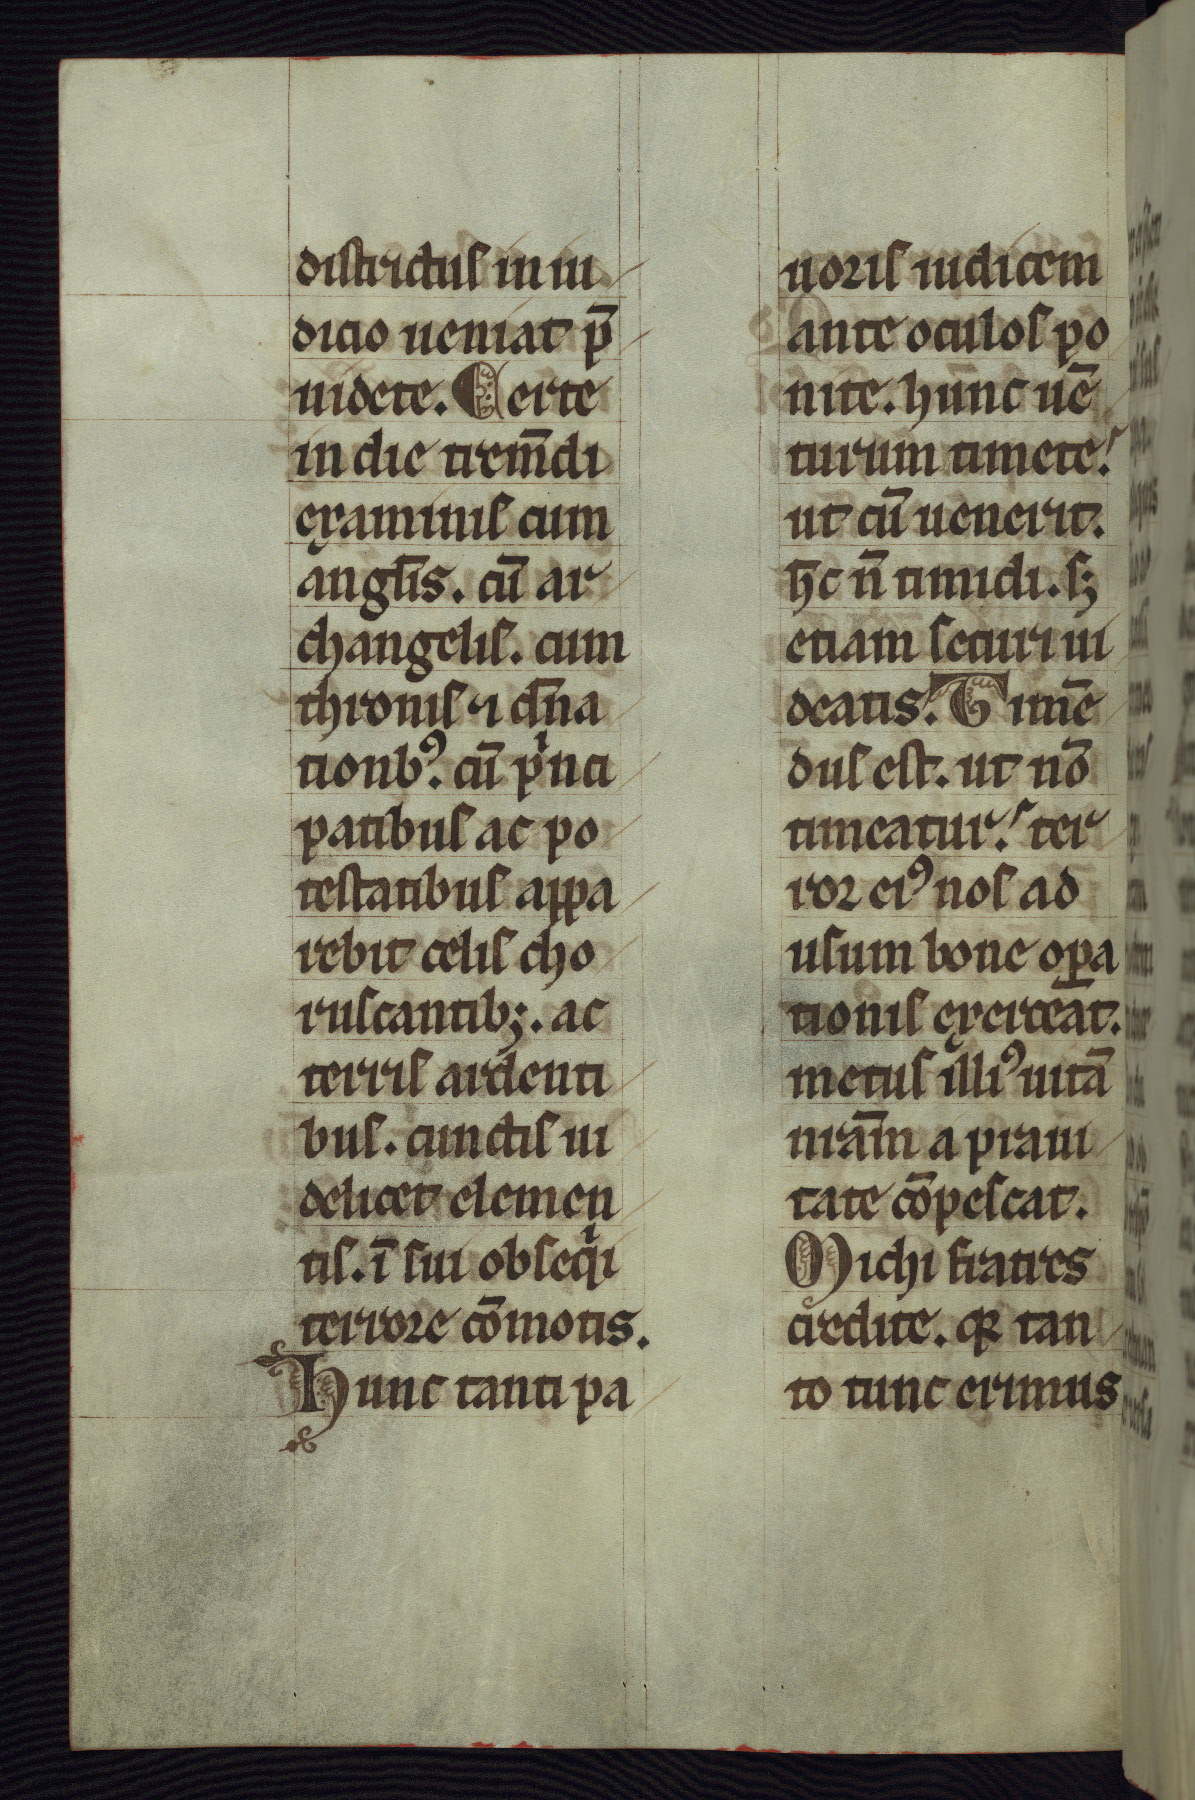 districtus in iu
dicio ueniat p̄
uidete. Certe
in die trem̄di
examinis cum
angl̄is. cū ar
changelis. cum
thronis ⁊ dn̄a
tionbꝰ. cū pͥnci
patibus ac po
testatibus appa
rebit celis cho
ruscantibꝫ. ac
terris ardenti
bus. cunctis ui
delicet elemen
tis. ī sui obseqͥi
terrore cōmotis.
Hunc tanti pa
uoris iudicem
ante oculos po
nite. hunc uē
turum timete.
ut cū uenerit.
h̄c n̄ timidi. sꝫ
etiam securi ui
deatis. Timē
dus est. ut nō
timeatur. ter
ror eiꝰ nos ad
usum bone oꝑa
tionis exerceat.
metus illiꝰ uitā
nr̄am a praui
tate cōpescat.
Michi fratres
credite. qꝛ tan
to tunc erimus